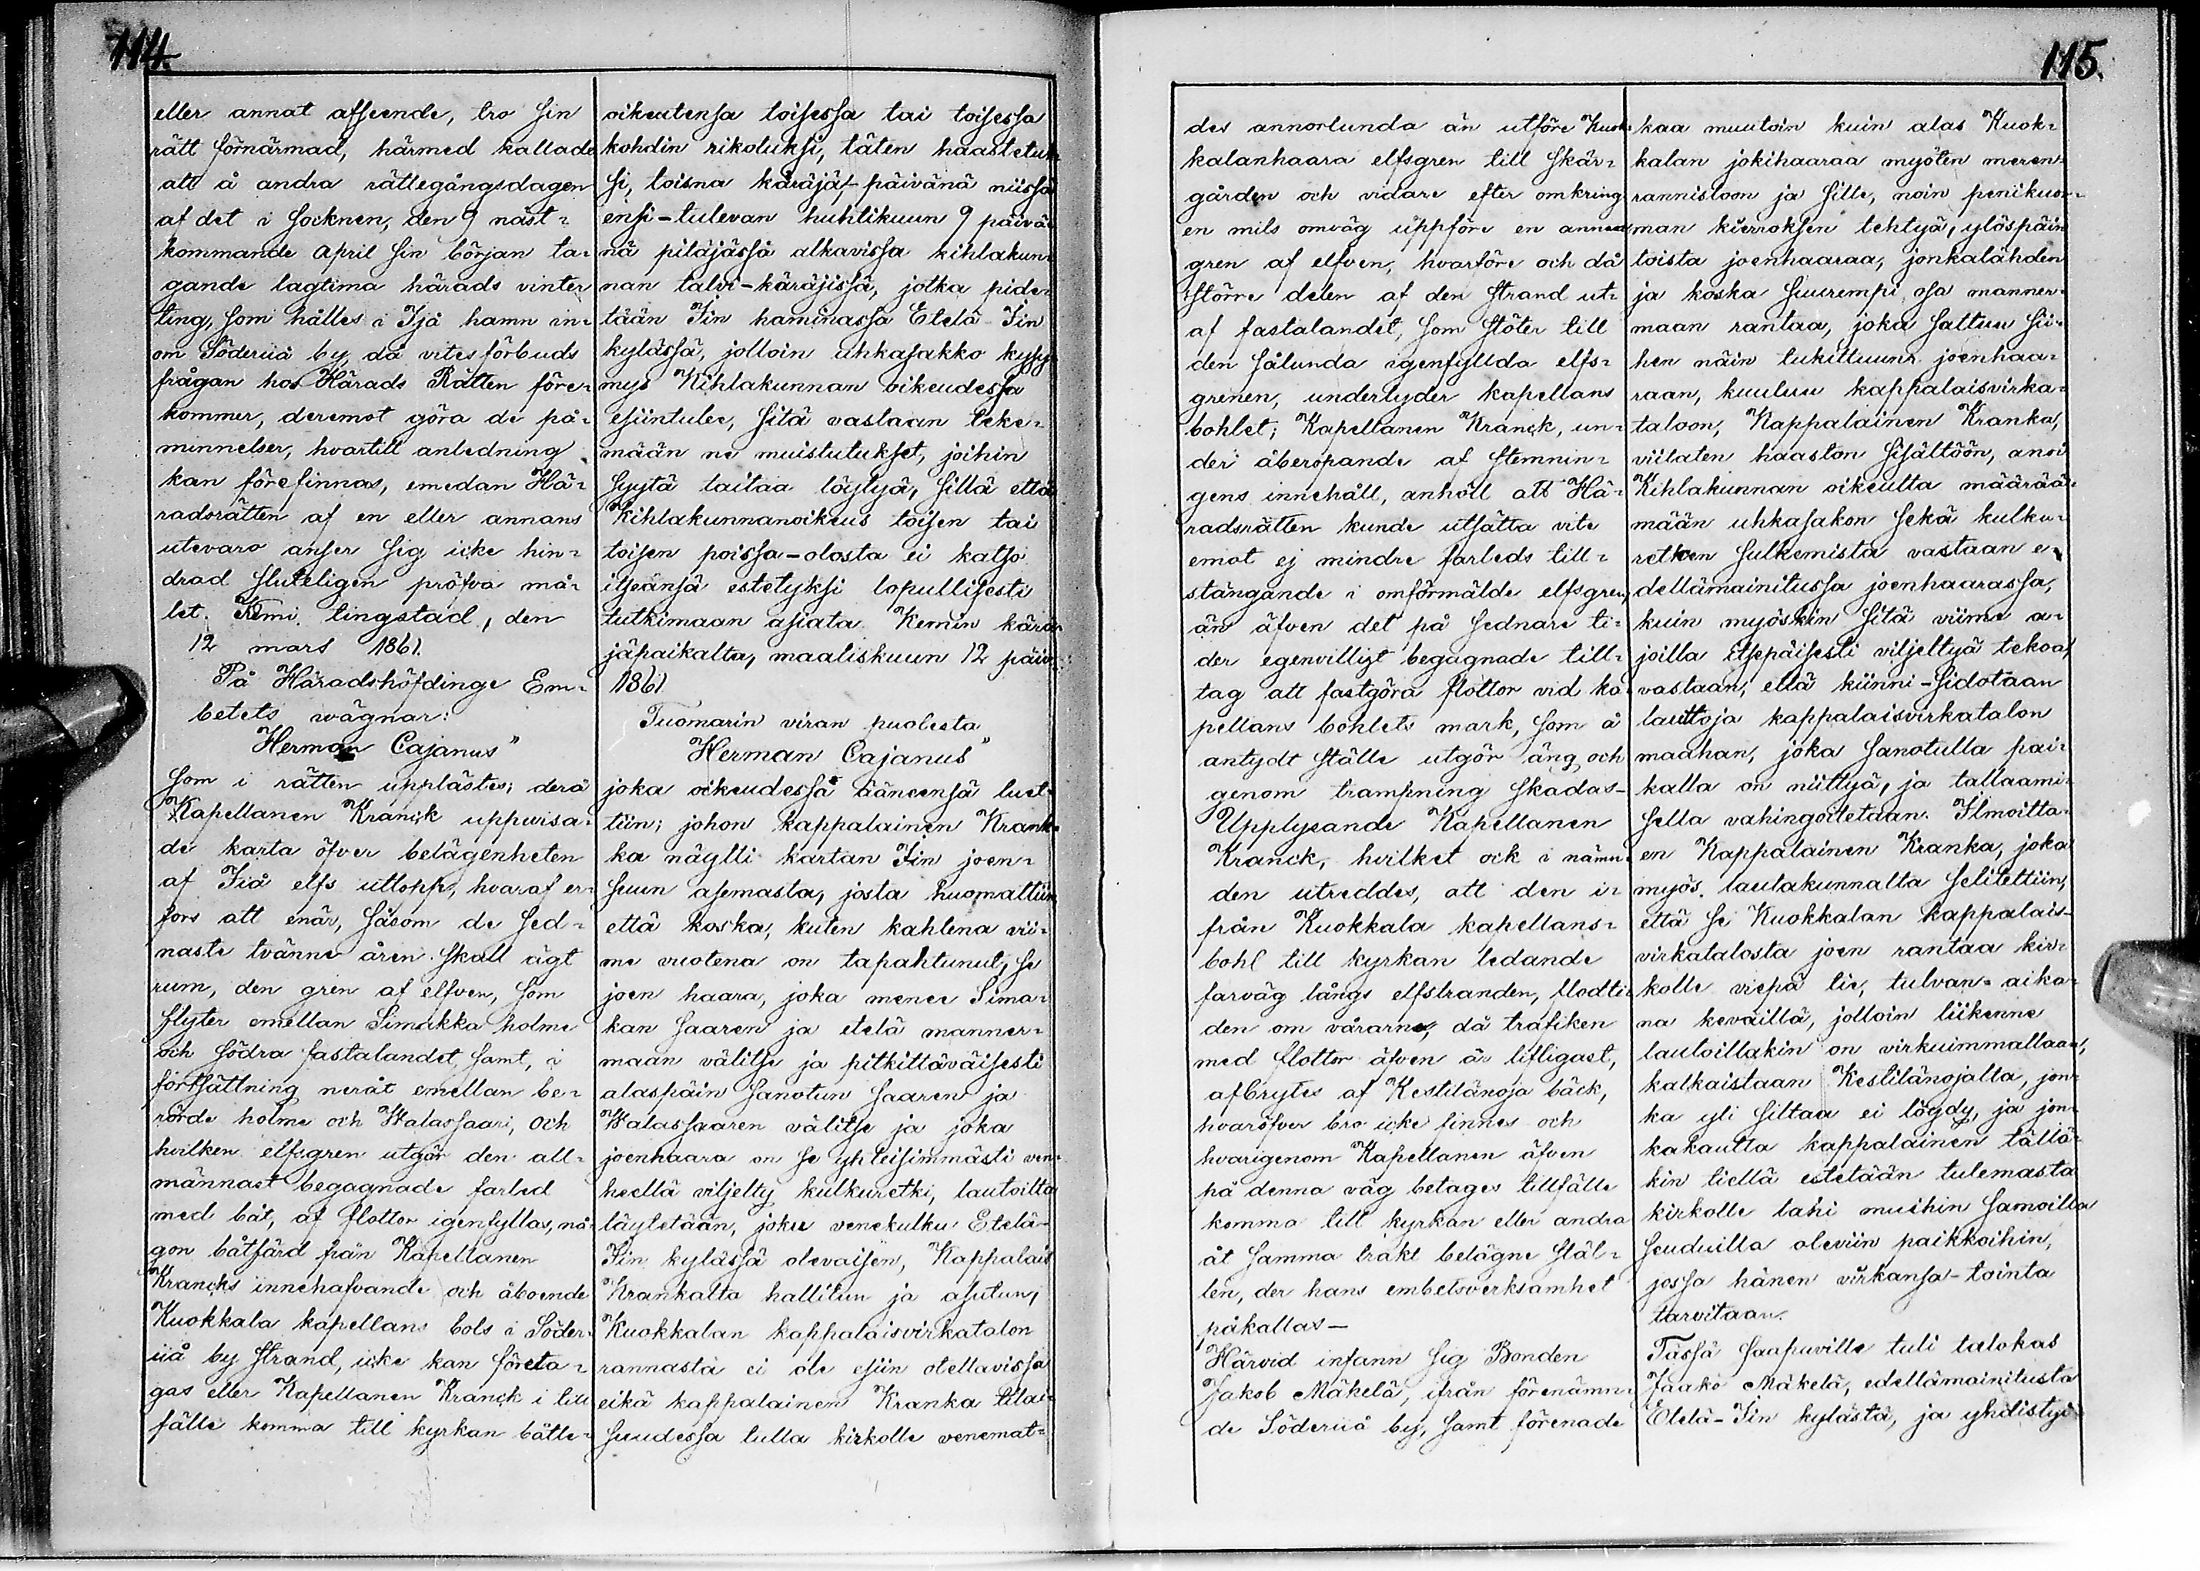 114.
eller annat afseende, tro sin
rätt förnärmad, härmed kallade
att å andra rättegångsdagen
af det i socknen, den 9 näst-
kommande April sin början ta-
gande lagtima härads vinter
ting, som hålles i Ijå hamn in-
om Söderiiå by, då vitesförbuds
frågan hos Härads Rätten före-
kommer, deremot göra de på-
minnelser, hvartill anledning
kan förefinnas, emedan Hä-
radsrätten af en eller annans
utevaro anser sig icke hin-
drad sluteligen pröfva må-
let. Kemi tingstad, den
12 mars 1861.
På Häradshöfdinge Em-
betets wägnar:
Herman Cajanus"
som i rätten upplästes; derå
Kapellanen Kranck uppwisa-
de karta öfver belägenheten
af Iiå elfs utlopp, hvaraf er-
fors att enär, såsom de sed-
naste tvänne åren skall ägt
rum, den gren af elfven, som
flyter emellan Simakka holme
och södra fastalandet samt, i
fortsättning neråt emellan be-
rörde holme och Walassaari, och
hvilken elfsgren utgör den all-
männast begagnade farled
med båt, af flottor igenfyllas, nå-
gon båtfärd från Kapellanen
Krancks innehafvande och åboende
Kuokkala kapellans bols i Söder-
iiå by strand, icke kan företa-
gas eller Kapellanen Kranck i till
fälle komma till kyrkan båtle-
oikeutensa toisessa tai toisessa
kohdin rikotuksi, täten haastetuk-
si, toisna käräjäs-päivänä niissä
ensi-tulevan huhtikuun 9 päivä-
nä pitäjässä alkavissa kihlakun-
nan talvi-käräjissä, jotka pide-
tään Iin haminassa Etelä Iin
kylässä, jolloin uhkasakko kysy-
mys Kihlakunnan oikeudessa
esiintulee, sitä vastaan teke-
mään ne muistutukset, joihin
syytä taitaa löytyä, sillä että
Kihlakunnanoikeus toisen tai
toisen poissa-olosta ei katso
itseänsä estetyksi lopullisesti
tutkimaan asiata. Kemin kärä-
jäpaikalta, maaliskuun 12 päiv.
1861
Tuomarin viran puolesta
Herman Cajanus"
joka oikeudessa ääneensä luet-
tiin; johon kappalainen Krank-
ka näytti kartan Iin joen-
suun asemasta, josta huomattiin
että koska, kuten kahtena vii-
me vuotena on tapahtunut, se
joen haara, joka menee Sima-
kan saaren ja etelä manner-
maan välitse ja pitkittäväisesti
alaspäin sanotun saaren ja
Walassaaren välitse ja joka
joenhaara on se yhteisimmästi ven-
heellä viljelty kulkuretki, lautoilta
täytetään, joku venekulku Etelä-
Iin kylässä olevaisen, Kappalais
Krankalta hallitun ja asutun,
Kuokkalan kappalaisvirkatalon
rannasta ei ole esiin otettavissa
eikä kappalainen Kranka tilai-
suudessa tulla kirkolle venemat-
115.
des annorlunda än utföre Kuok-
kalanhaara elfsgren till skär-
gården och vidare efter omkring
en mils omväg uppföre en annan
gren af elfven, hvarföre och då
större delen af den strand ut-
af fastalandet, som stöter till
den sålunda igenfyllda elfs-
grenen, underlyder kapellans
bohlet; Kapellanen Kranck, un-
der åberopande af stemnin-
gens innehåll, anhöll att Hä-
radsrätten kunde utsätta vite
emot ej mindre farleds till-
stängande i omförmälde elfsgren,
än äfven det på sednare ti-
der egenvilligt begagnade till-
tag att fastgöra flottor vid ka-
pellans bohlets mark, som å
antydt ställe utgör äng och
genom trampning skadas-
Upplysande Kapellanen
Kranck, hvilket ock i nämn-
den utreddes, att den i-
från Kuokkala kapellans-
bohl till kyrkan ledande
farväg långs elfstranden, flodti-
den om vårarne, då trafiken
med flottor äfven är lifligast,
afbrytes af Kestilänoja bäck,
hvaröfver bro icke finnes och
hvarigenom Kapellanen äfven
på denna väg betages tillfälle
komma till kyrkan eller andra
åt samma trakt belägne stäl-
len, der hans embetsverksamhet
påkallas—
Härvid infann sig Bonden
Jakob Mäkelä, ifrån förenämn-
de Söderiiå by, samt förenade
kaa muutoin kuin alas Kuok-
kalan jokihaaraa myöten meren-
rannistoon ja sille, noin penikuor-
man kierroksen tehtyä, ylöspäin
toista joenhaaraa, jonkalähden
ja koska suurempi osa manner-
maan rantaa, joka sattuu sii-
hen näin tukittuun joenhaa-
raan, kuuluu kappalaisvirka-
taloon, Kappalainen Kranka,
viitaten haaston sisältöön, anoi
Kihlakunnan oikeutta määrää-
mään uhkasakon sekä kulku-
retken sulkemista vastaan e-
dellämainitussa joenhaarassa,
kuin myöskin sitä viime a-
joilla itsepäisesti viljeltyä tekoa
vastaan, että kiinni-sidotaan
lauttoja kappalaisvirkatalon
maahan, joka sanotulla pai-
kalla on niittyä, ja tallaami-
sella vahingoitetaan. Ilmoitta-
en Kappalainen Kranka, joka
myös lautakunnalta selitettiin,
että se Kuokkalan kappalais-
virkatalosta joen rantaa kir-
kolle viepä tie, tulvan-aika-
na keväillä, jolloin liikenne
lautoillakin on virkuimmallaan,
katkaistaan Kestilänojalta, jon-
ka yli siltaa ei löydy, ja jon-
kakautta kappalainen tällä-
kin tiellä estetään tulemasta
kirkolle tahi muihin samoilla
seuduilla oleviin paikkoihin,
jossa hänen virkansa-tointa
tarvitaan.
Tässä saapuville tuli talokas
Jaako Mäkelä, edellämainitusta
Etelä-Iin kylästä, ja yhdistyi